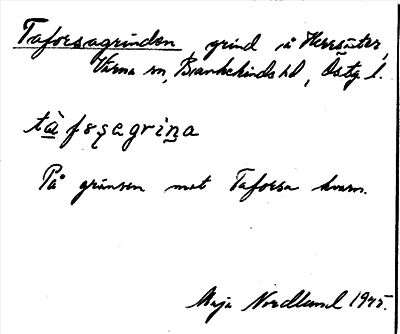 Taforsagrinden, grind å Herrsäter,
Värna sn, Bankekinds hd, Östg. l.
tàfo̢sagrina
På gränsen mot Taforsa kvarn.
Maja Nordlund 1945.